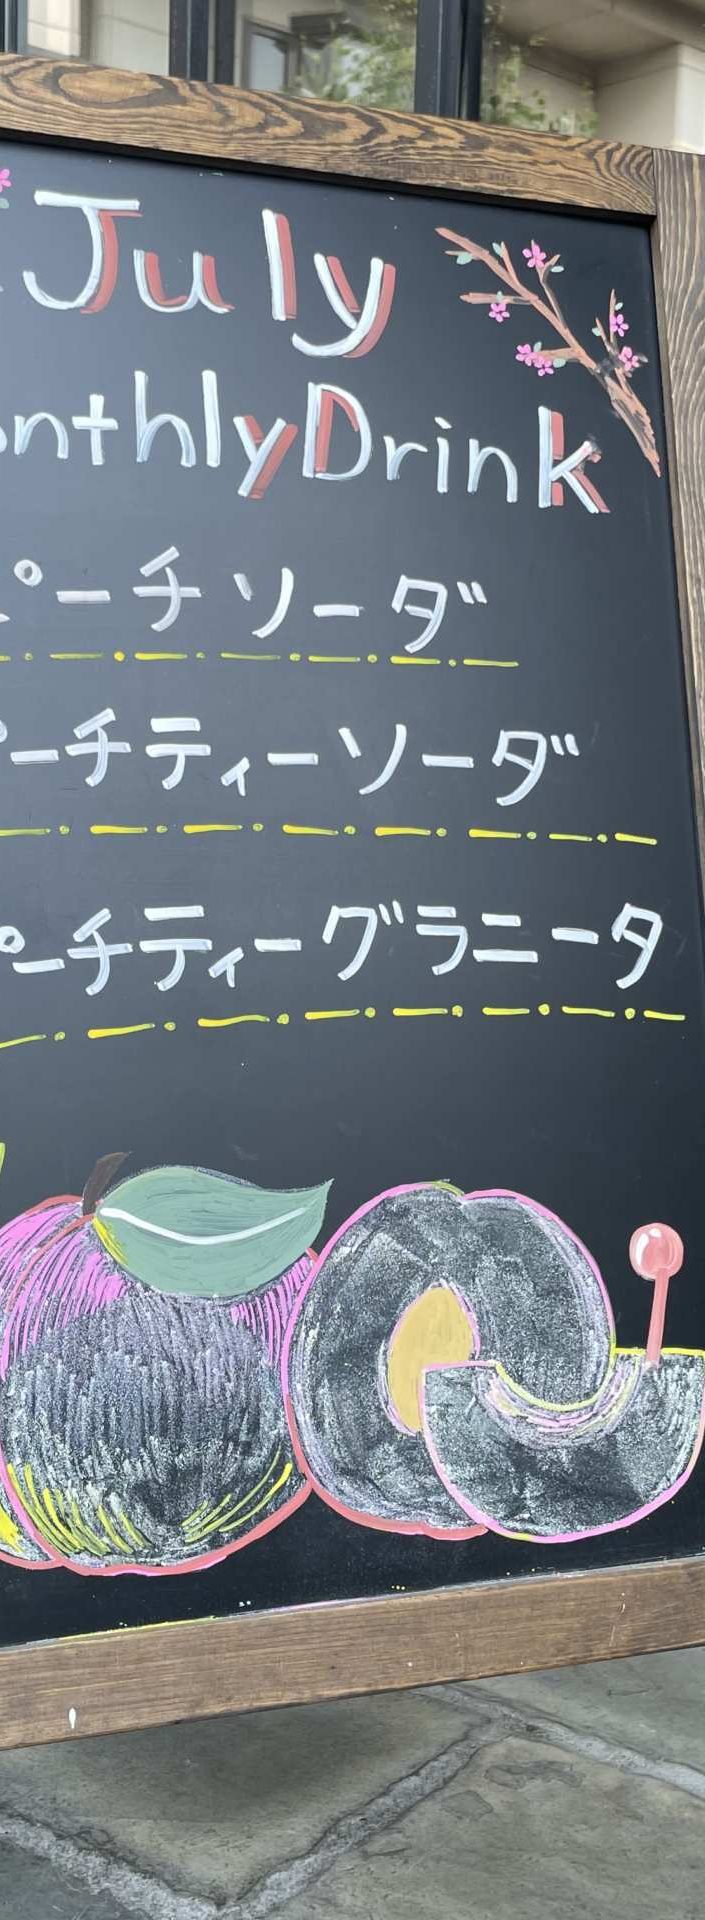 July
onthly Drink
ピーチソーダ
ーチティーソーダ
ピーチティーグラニータ